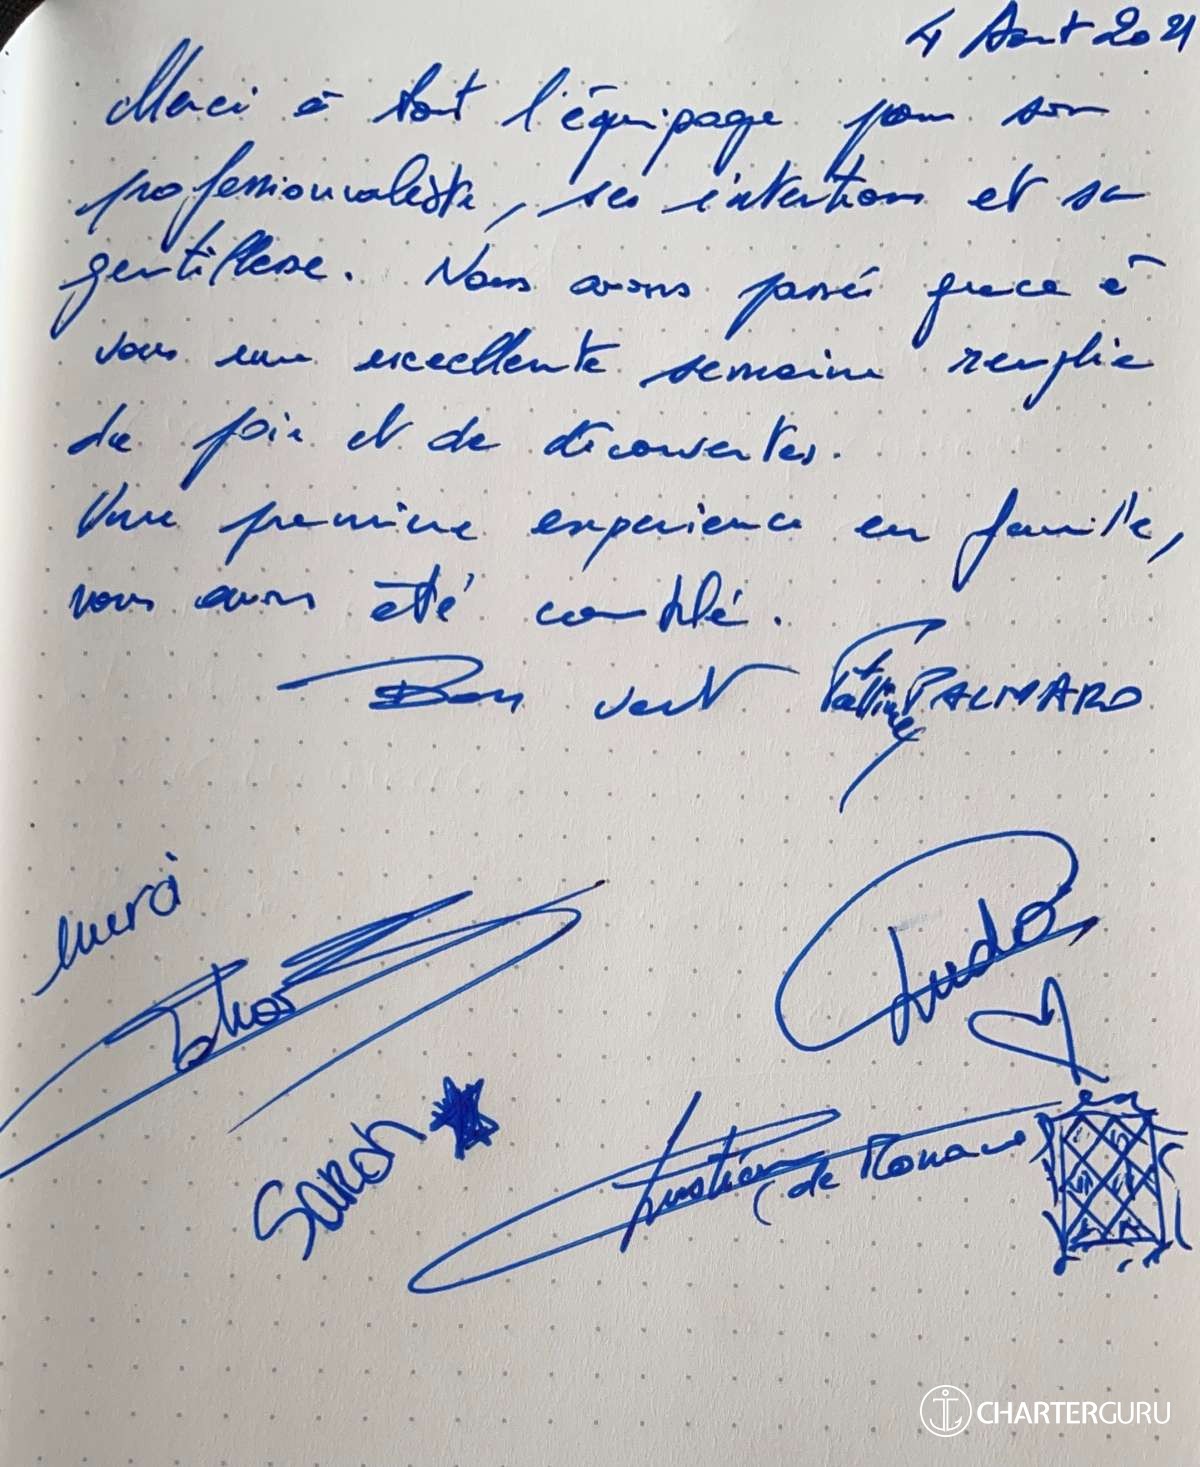 4 Aout 2021
Merci à tout l'équipage pour son
professionnaliste, ses intentions et sa
gentillesse. Nous avons passé grace à
vous une excellente semaine remplie
de joie et de découvertes.
Une première experience en famille,
nous avons été comblé.
Bon vent PALMARO
merci
Ludo
SaRah
de Monaco
CHARTERGURU